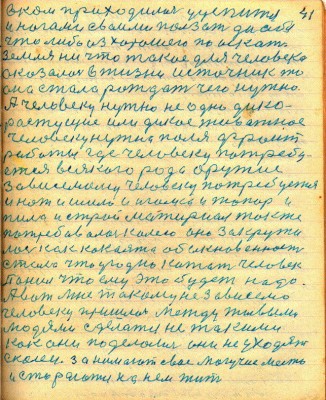 41
веком приходилися уцепится
и ногами своими ползать да себе
что либо из хорошего поискать.
Земля ни что такое для человека
оказалася в жизни источником
она стала рождать чего нужно.
А человеку нужно не одно дико-
растущие или дикое животное
человеку нужна поля фронт
работы где человеку потребу-
ется всякого рода оружие
Зависемому человеку потребуется
и нож и шило и иголка и топор и
пила и строй материал также
потребовалося колесо оно закружи
лося как какаято обыкновенность
стала что угодно катат человек
понял что ему это будет надо.
А вот мне такому не зависемо
человеку пришлося между таковыми
людями сделатся не такими
как они поделалися они не уходят
с колеи. Занимают свое могучие место
и стараются на нем жит